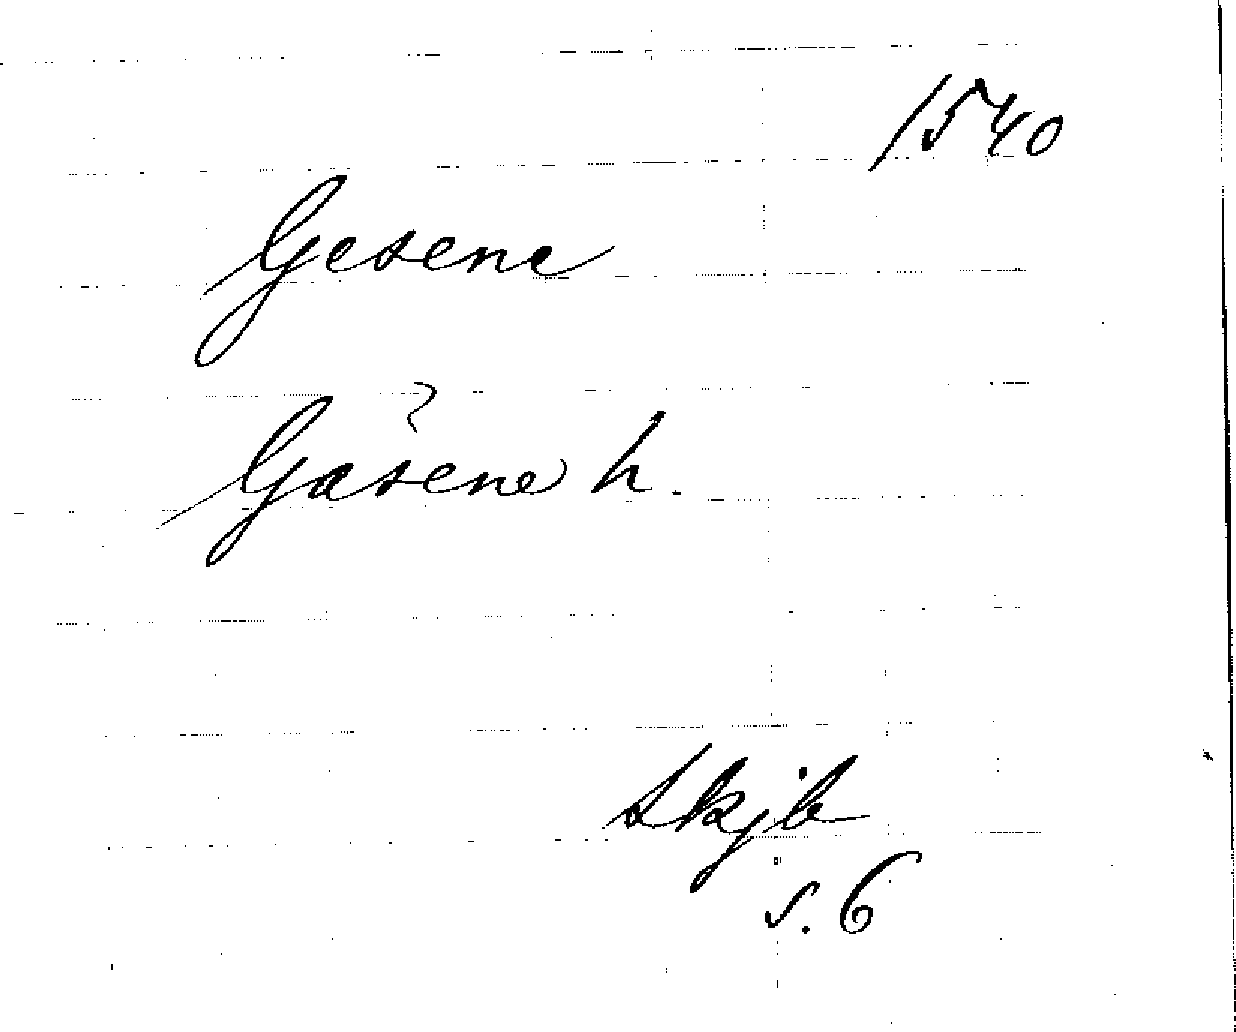 1540
Gesene
Gäsene h.
Skjb
s. 6